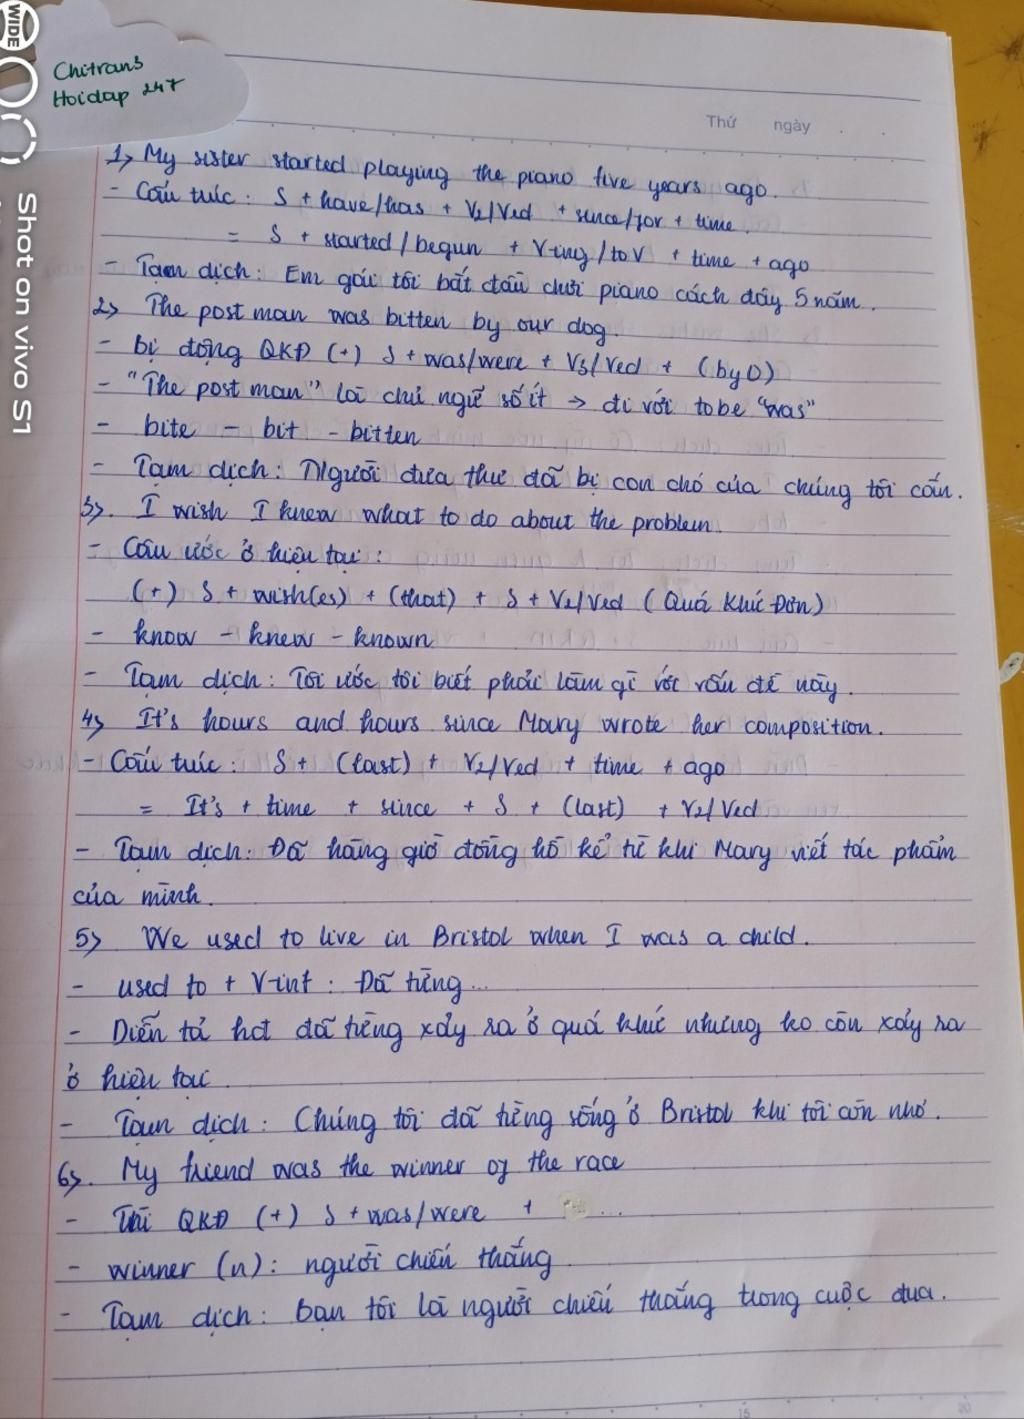 WIDE
Shot on vivo S1
Chitrans
Hoidap 247
Thứ ngày
1, My sister started playing the piano five years ago.
- Cấu trúc: S + have/has + V3/Ved + since/for + time.
= S + started/begun + V-ing/to V + time + ago
- Tạm dịch: Em gái tôi bắt đầu chơi piano cách đây 5 năm.
2, The post man was bitten by our dog.
- bị động QKĐ (+) S + was/were + V3/Ved + (by O)
- "The post man" là chủ ngữ số ít → đi với tobe "was"
- bite - bit - bitten
- Tạm dịch: Người đưa thư đã bị con chó của chúng tôi cắn.
3, I wish I knew what to do about the problem.
- Câu ước ở hiện tại:
(+) S + wish(es) + (that) + S + V2/Ved (Quá Khứ Đơn)
- know - knew - known
- Tạm dịch: Tôi ước tôi biết phải làm gì với vấn đề này.
4, It's hours and hours since Mary wrote her composition.
- Cấu trúc: S + (last) + V2/Ved + time + ago
= It's + time + since + S + (last) + V2/Ved
- Tạm dịch: Đã hàng giờ đồng hồ kể từ khi Mary viết tác phẩm
của mình.
5, We used to live in Bristol when I was a child.
- used to + V-inf: Đã từng...
- Diễn tả hđ đã từng xảy ra ở quá khứ nhưng ko còn xảy ra
ở hiện tại
- Tạm dịch: Chúng tôi đã từng sống ở Bristol khi tôi còn nhỏ.
6, My friend was the winner of the race
- Thì QKĐ (+) S + was/were + ...
- winner (n): người chiến thắng
- Tạm dịch: bạn tôi là người chiến thắng trong cuộc đua.
15 20